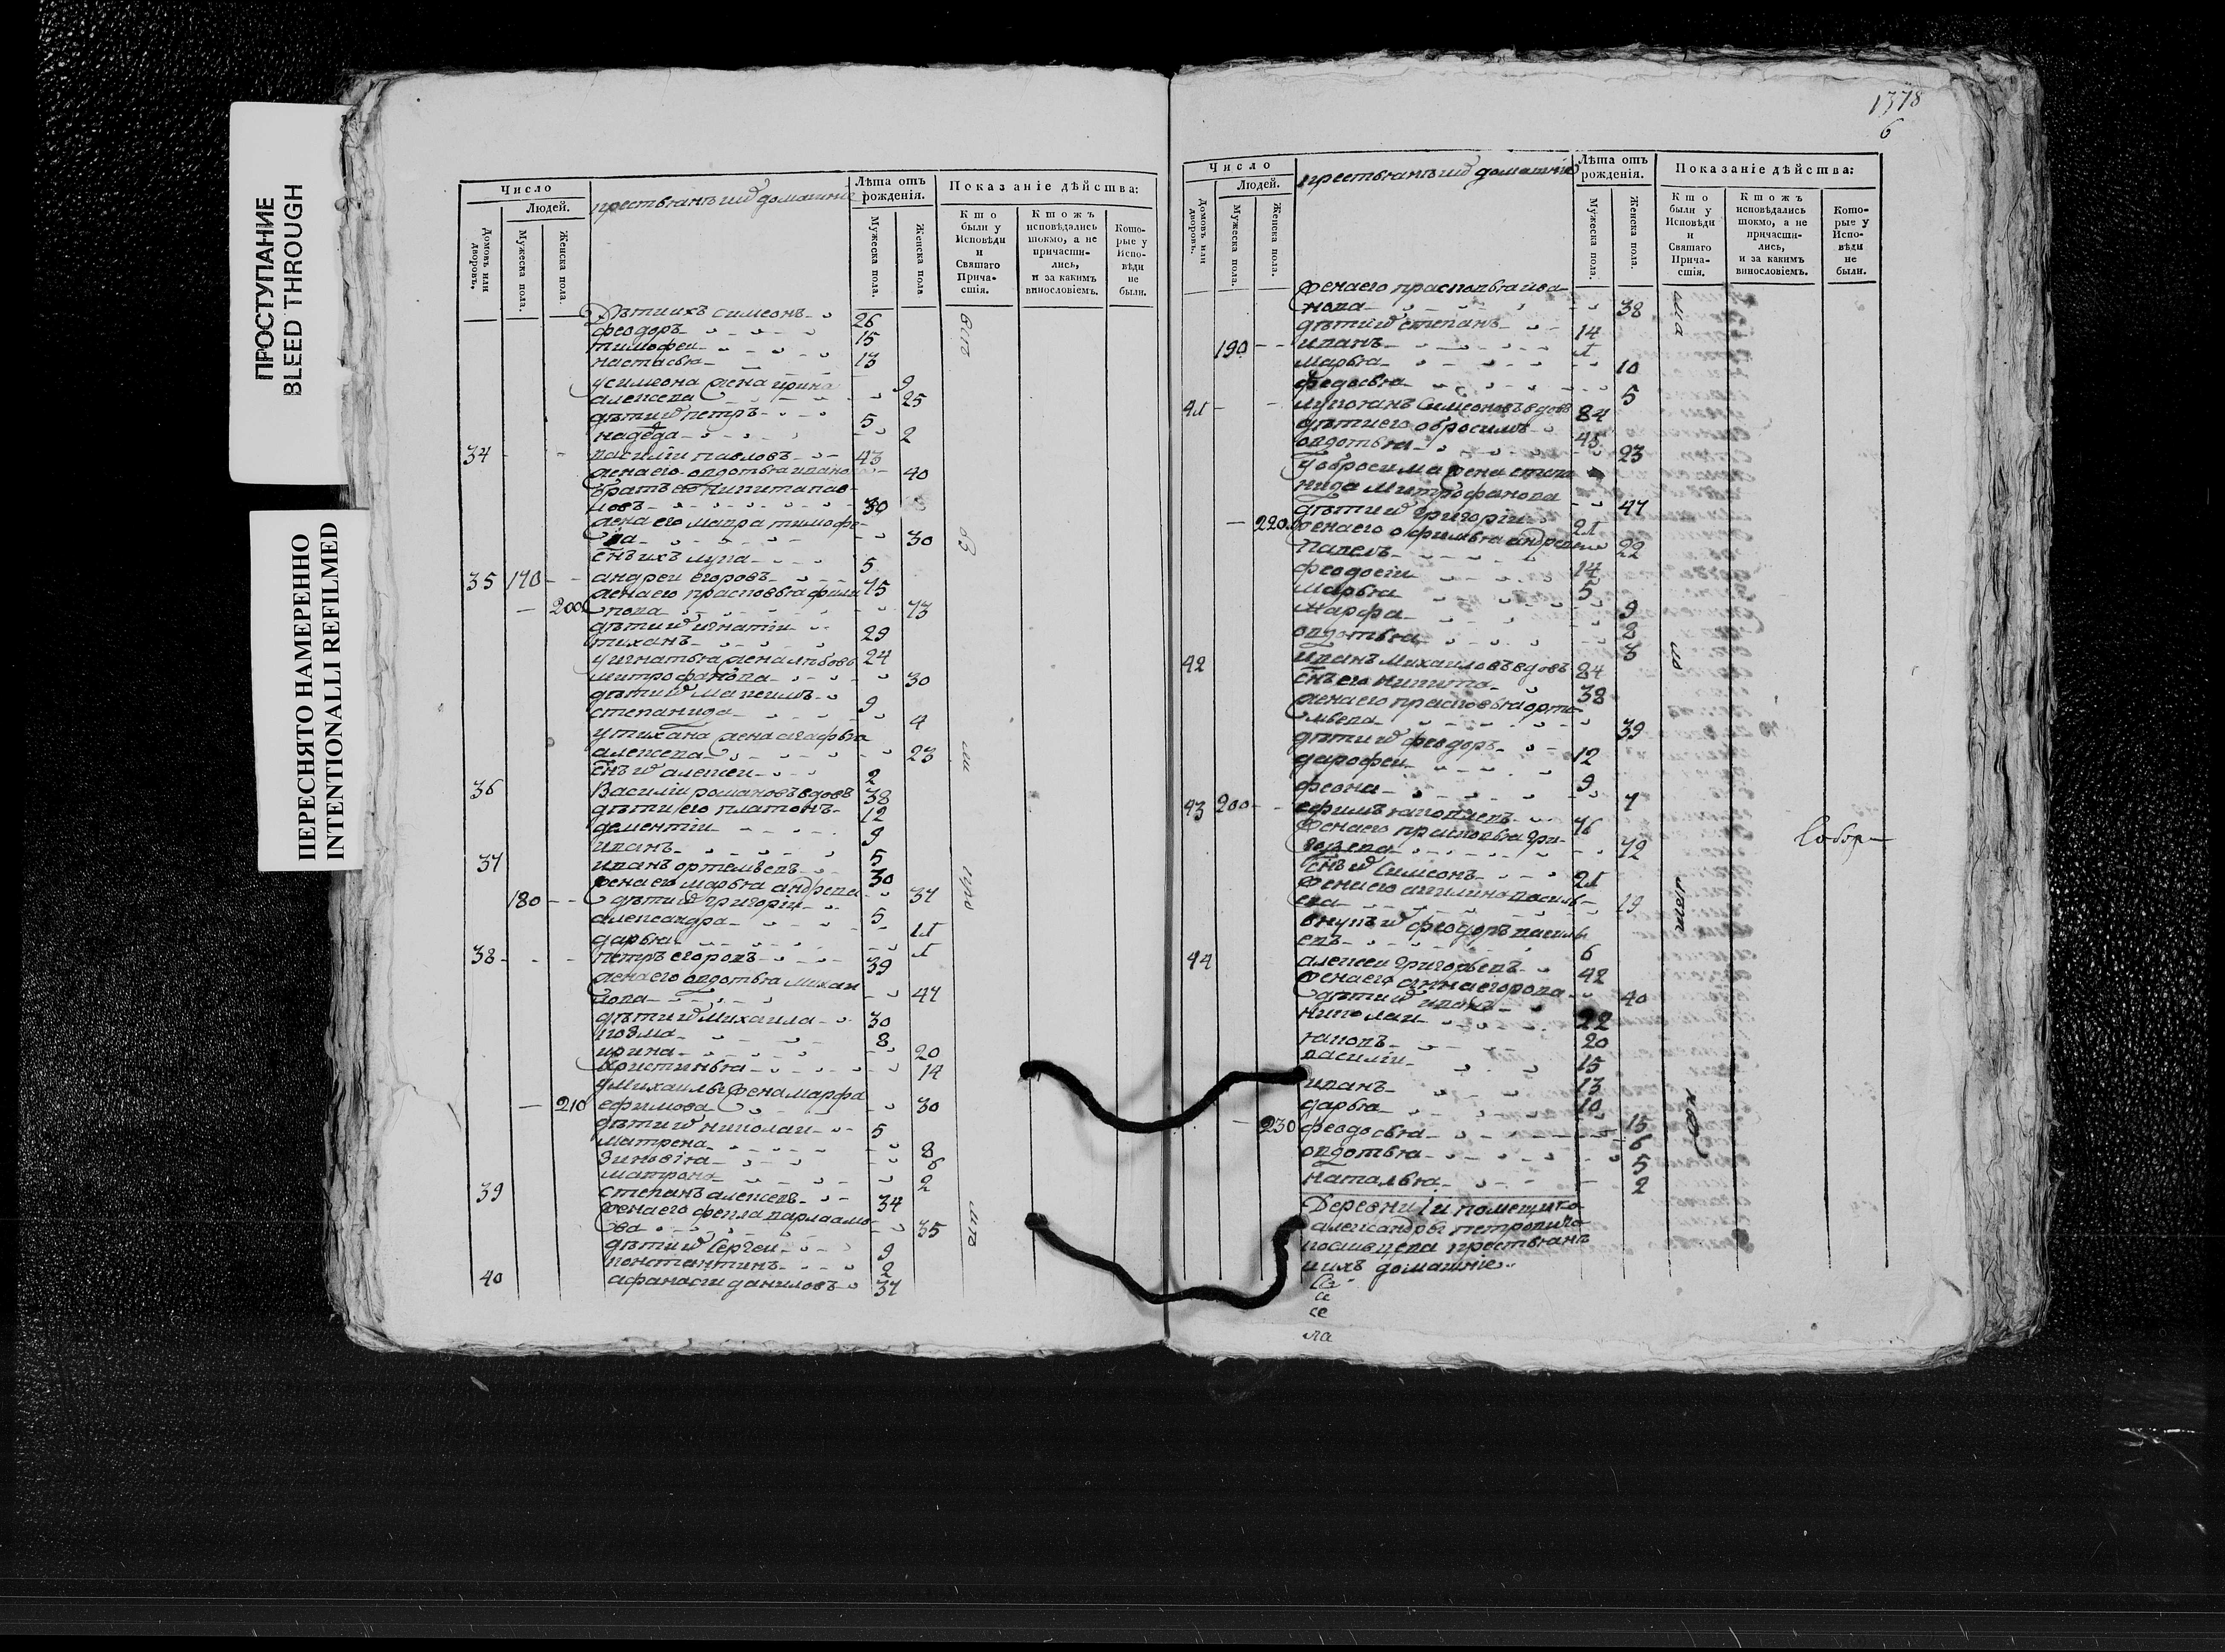 ПРОСТУПАНИЕ
BLEED THROUGH
ПЕРЕСНЯТО НАМЕРЕННО
INTENTIONALLI REFILMED
Число
Людей.
Домовъ или дворовъ.
Мужеска пола.
Женска пола.
крестьянъ и ихъ домашніе
Лѣта отъ рожденія.
Мужеска пола.
Женска пола
Показаніе дѣйства:
Кто были у Исповѣди и Святаго Прича-стія.
Ктожъ исповѣдались токмо, а не причасти-лись, и за какимъ винословіемъ.
Кото-рые у Испо-вѣди не были.
Дѣти ихъ симеонъ 26
феодоръ 15
тимофеи 13
настасья 9
у симеона жена ирина
алексева 25
дѣти петръ 5
надежда 2
34 василіи павловъ 43
жена его овдотья иванова 40
братъ его никита пав-
ловъ 30
жена его мавра тимофе-
ева 30
снъ ихъ лука 5
35 170 андреи егоровъ 75
жена его прасковья фили
200 пова 73
дѣти игнатіи 29
тиханъ 24
у игнатья жена любовь
митрофанова 30
дѣти максимъ 9
степанида 4
у тихана жена агафья
алексева 23
снъ алексеи 2
36 Василіи романовъ вдовъ 38
дѣти его платонъ 12
дементіи 9
иванъ 5
37 иванъ ортемьевъ 30
жена его марья андреева 37
180 дѣти григоріи 5
александра
дарья
38 петръ егоровъ 39
жена его овдотья михаи
лова 47
дѣти михаила 30
козма 8
ирина 20
христинья 14
у михаилы жена марфа
210 ефимова 30
дѣти николаи 5
матрена 8
зиновія 6
матрона 2
39 степанъ алексевъ 34
жена его фекла варлаамо
ва 35
дѣти Сергеи 9
константинъ 2
40 афанасіи даниловъ 37
1378
6
Число
Людей.
Домовъ или дворовъ.
Мужеска пола.
Женска пола.
крестьянъ и ихъ домашніе
Лѣта отъ рожденія.
Мужеска пола.
Женска пола.
Показаніе дѣйства:
Кто были у Исповѣди и Святаго Прича-стія.
Ктожъ исповѣдались токмо, а не причасти-лись, и за какимъ винословіемъ.
Кото-рые у Испо-вѣди не были.
жена его прасковья ива-
нова 38
дѣти степанъ 14
190 иванъ
марья 10
федосья 5
лукоянъ Симеоновъ вдовъ 84
дѣти его обросимъ 45
овдотья 23
у обросима жена степа
нида митрофанова 47
дѣти григоріи
220 жена его офимья андреева 22
павелъ 14
феодосіи 5
марья 9
марфа 8
овдотья 3
42 иванъ михаиловъ вдовъ 84
снъ его никита 38
жена его прасковья орте
мьева 39
дѣти феодоръ 12
дарофеи 9
феона 7
43 200 ефимъ яковлевъ 76
жена его прасковья гри-
горьева 72
снъ Симеонъ
жена его акилина василь-
ева 19
внукъ феодоръ василь
евъ 6
44 алексеи григорьевъ 42
жена его анна егорова 40
дѣти иванъ 22
николаи 20
яковъ 15
василіи 13
иванъ 10
дарья 15
230 феодосья 6
овдотья 5
наталья 2
Деревни помещика
александры петровича
крестьянъ
и ихъ домашніе